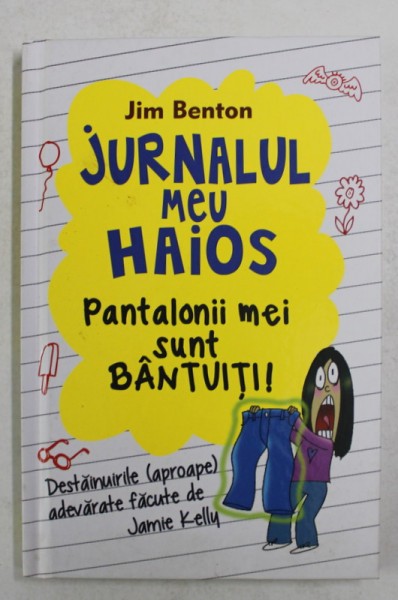 Jim Benton
JURNALUL
MEU
HAiOS
Pantalonii mei
sunt
BÂNTUIȚI!
Destăinuirile (aproape)
adevărate făcute de
Jamie Kelly